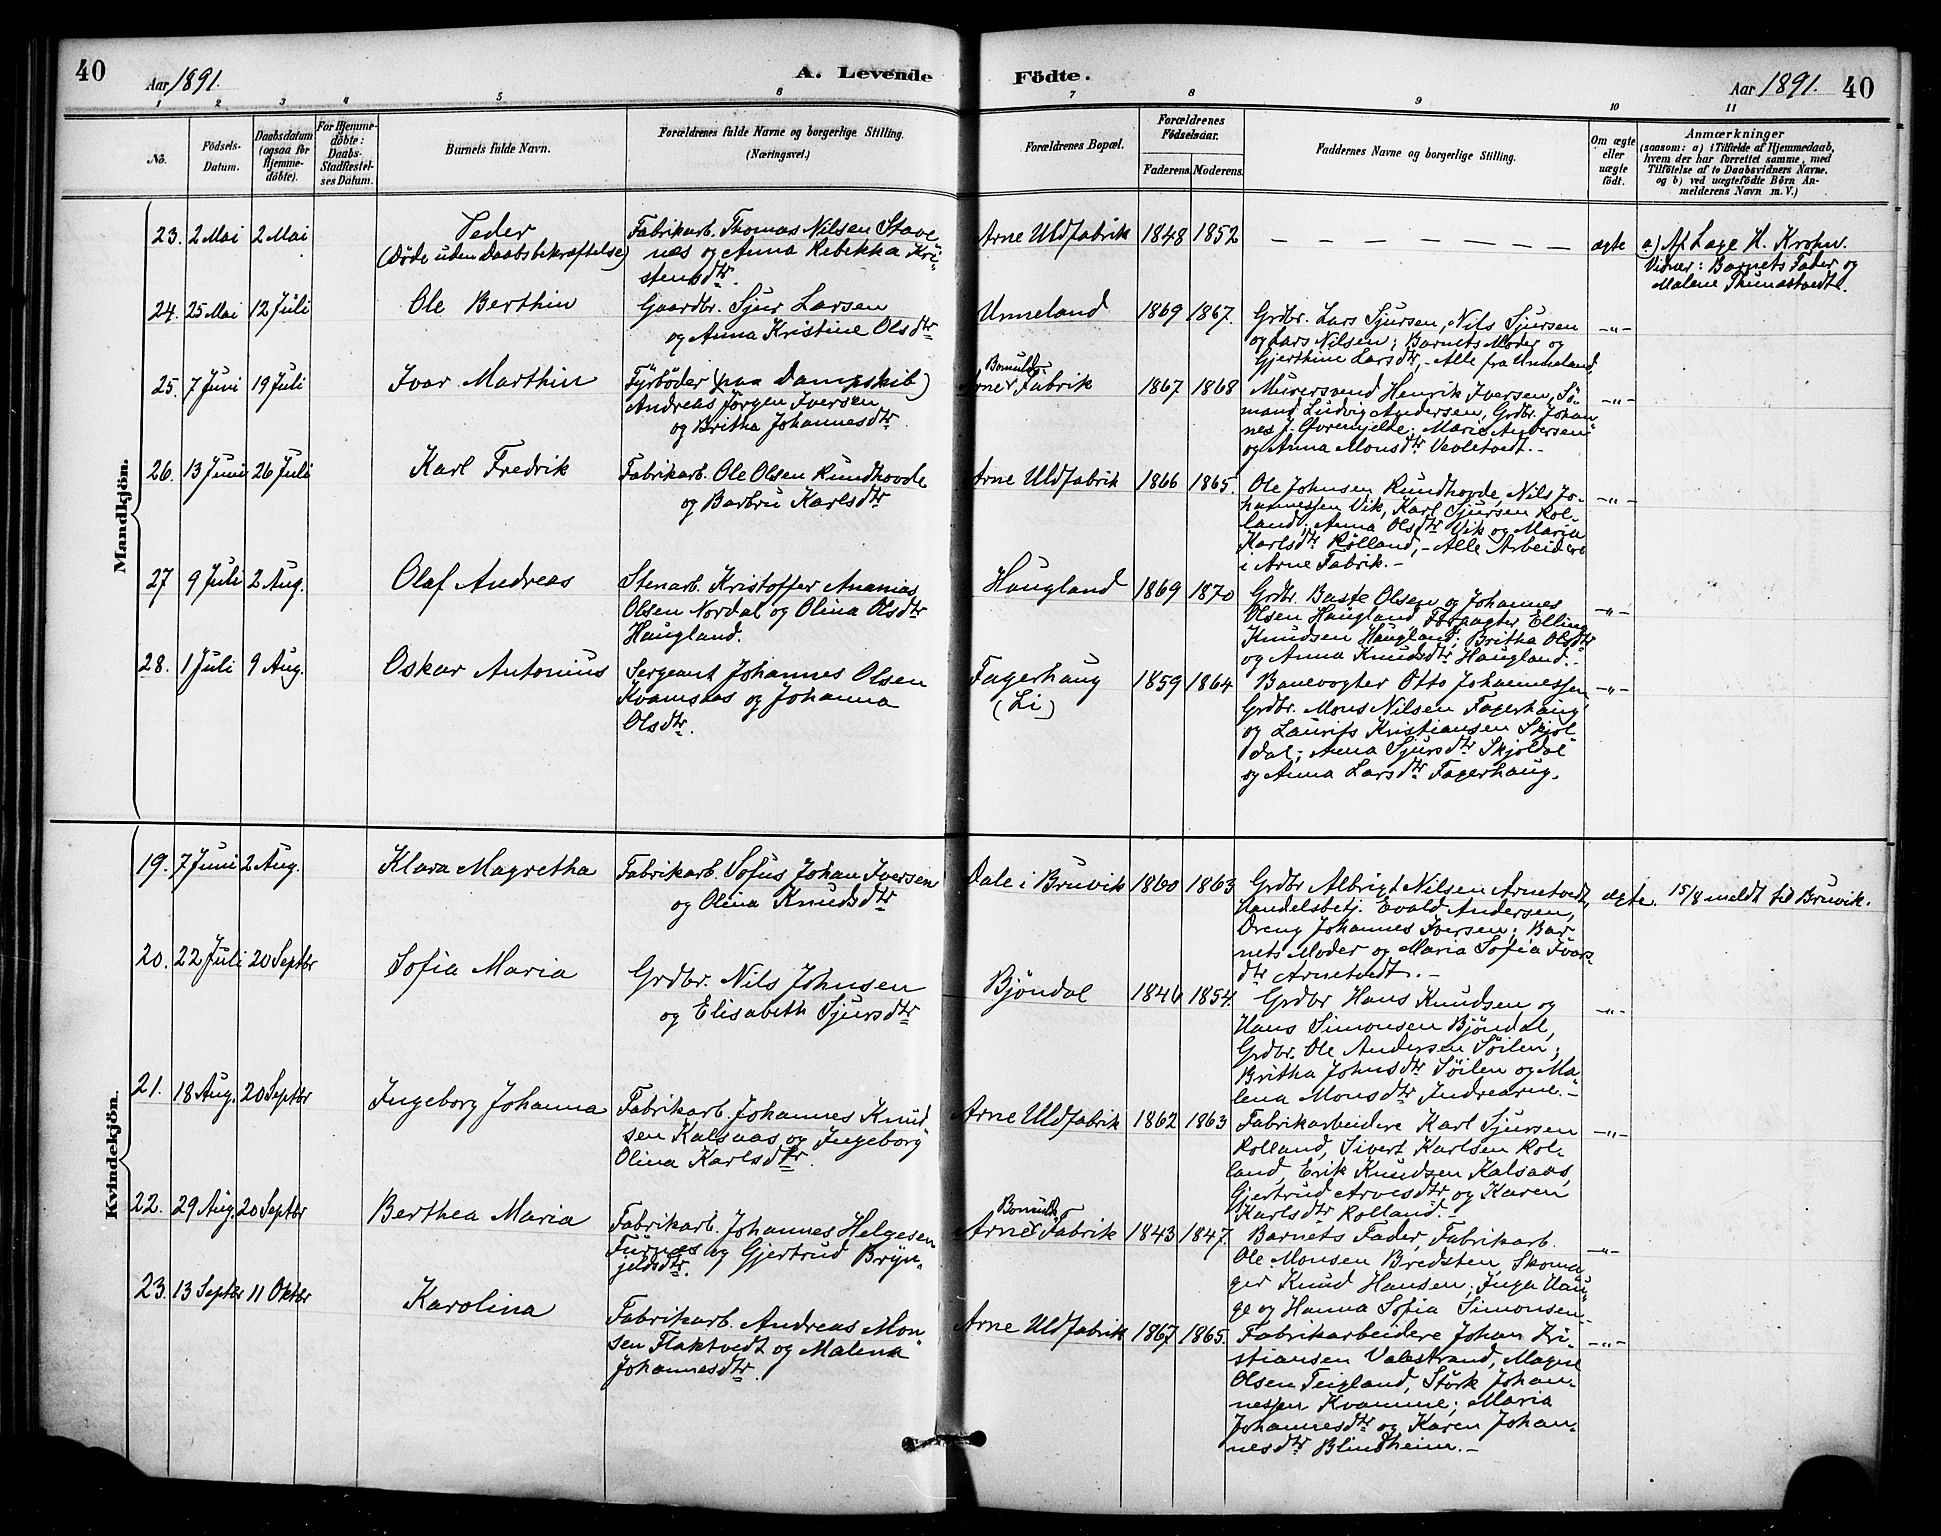 40
Aar 1891.
A. Levende
Födte.
Aar 1891.
40
1 2 3 4 5 6 7 8 9 10 11
No.
Födsels-
Datum.
Daabsdatum
(ogsaa for
Hjemme-
döbte).
For Hjemme-
döbte:
Daabs-
Stadfæstel-
ses Datum.
Barnets fulde Navn.
Forældrenes fulde Navne og borgerlige Stilling.
(Næringsvei.)
Forældrenes Bopæl.
Forældrenes
Födselsaar.
Faderens.
Moderens.
Faddernes Navne og borgerlige Stilling.
Om ægte
eller
uægte
födt.
Anmærkninger
(saasom: a) i Tilfælde af Hjemmedaab,
hvem der har forrettet samme, med
Tilföielse af to Daabsvidners Navne.
og b) ved uægtefödte Börn An-
melderens Navn m. V.)
Mandkjön.
23. 2 Mai 2 Mai
Peder
(Döde uden Daabsbekræftelse)
Fabrikarb. Thomas Nilsen Stave-
næs og Anna Rebekka Kri-
stensdtr.
Arne Uldfabrik 1848 1852 — — — — — — — — ægte
a) Af Lage H. Krohn.
Vidner: Barnets Fader og
Malene Thunestvedt.
24. 25 Mai 12 Juli
Ole Berthin
Gaardbr. Sjur Larsen
og Anna Kristine Olsdtr
Unneland 1869 1867.
Grdbr. Lars Sjursen, Nils Sjursen
og Lars Nilsen; Barnets Moder og
Gjerthine Larsdtr, - Alle fra Unneland
-"-
25. 7 Juni 19 Juli
Ivar Marthin
Fyrböder (paa Dampskib)
Andreas Jörgen Iversen
og Britha Johannesdtr
Bomulds-
Arne Fabrik 1867 1868
Murersvend Henrik Iversen, Sö-
mand Ludvig Andersen, Grdbr. Johan-
nes J. Övremjelde; Marie Andersen
og Anna Monsdtr Vevletvedt.-
-"-
26. 13 Juni 26 Juli
Karl Fredrik
Fabrikarb. Ole Olsen Rundhovde
og Barbru Karlsdtr
Arne Uldfabrik 1866 1865.
Ole Johnsen Rundhovde, Nils Jo-
hannessen Vik, Karl Sjursen Rol-
land; Anna Olsdtr Vik og Maria
Karlsdtr Rolland, - Alle Arbeidere
i Arne Fabrik.-
-"-
27 9 Juli 2 Aug.
Olaf Andreas
Stenarb. Kristoffer Ananias
Olsen Nordal og Olina Olsdtr
Haugland.
Haugland 1869 1870
Grdbr. Baste Olsen og Johannes
Olsen Haugland, Forpagter Elling
Knudsen Haugland; Britha Olsdtr
og Anna Knudsdtr Haugland.-
-"-
28. 1 Juli 9 Aug.
Oskar Antonius
Sergeant Johannes Olsen
Kvamsaas og Johanna
Olsdtr.
Fagerhaug
(Li)
1859 1864
Banevogter Otto Johannessen
Grdbr. Mons Nilsen Fagerhaug
og Laurits Kristiansen Skjol-
dal; Anna Sjursdtr Skjoldal
og Anna Larsdtr Fagerhaug.
-"-
Kvindekjön.
19. 7 Juni 2 Aug.
Klara Magretha
Fabrikarb. Sofus Johan Iversen
og Olina Knudsdtr
Dale i Bruvik 1860 1863
Grdbr Albrigt Nilsen Arnetvedt,
Handelsbetj. Evald Andersen,
Dreng Johannes Iversen; Bar-
nets Moder og Maria Sofia Ivars-
dtr Arnetvedt.-
ægte. 15/8 meldt til Bruvik.
20. 22 Juli 20 Septbr
Sofia Maria
Grdbr. Nils Johnsen
og Elisabeth Sjursdtr
Bjöndal 1846 1854.
Grdbr Hans Knudsen og
Hans Simonsen Bjöndal,
Grdbr. Ole Andersen Söilen;
Britha Johnsdtr Söilen og Ma-
lena Monsdtr Indrearne.-
-"-
21. 18 Aug. 20 Septbr
Ingeborg Johanna
Fabrikarb. Johannes Knud-
sen Kalsaas og Ingeborg
Olina Karlsdtr.
Arne Uldfabrik 1862 1863
Fabrikarbeidere Karl Sjursen
Rolland, Sivert Karlsen Rol-
land, Erik Knudsen Kalsaas,
Gjertrud Arvesdtr og Karen
Karlsdtr Rolland.-
-"-
22. 29 Aug. 20 Septbr
Berthea Maria
Fabrikarb. Johannes Helgesen
Furnæs og Gjertrud Bryn-
jeldsdtr.
Bomulds
Arne Fabrik 1843 1847.
Barnets Fader, Fabrikarb.
Ole Monsen Bredsten, Skoma-
ger Knud Hansen; Inga Hau-
ge og Hanna Sofia Simonsen
-"-
23. 13 Septbr 11 Oktbr
Karolina
Fabrikarb. Andreas Mon-
sen Flaktvedt og Malena
Johannesdtr.
Arne Uldfabrik 1867 1865.
Fabrikarbeidere Johan Kri-
stiansen Valestrand, Magne
Olsen Teigland, Störk Johan-
nessen Kvamme; Maria
Johannesdtr og Karen Johan-
nesdtr Blindheim.-
-"-